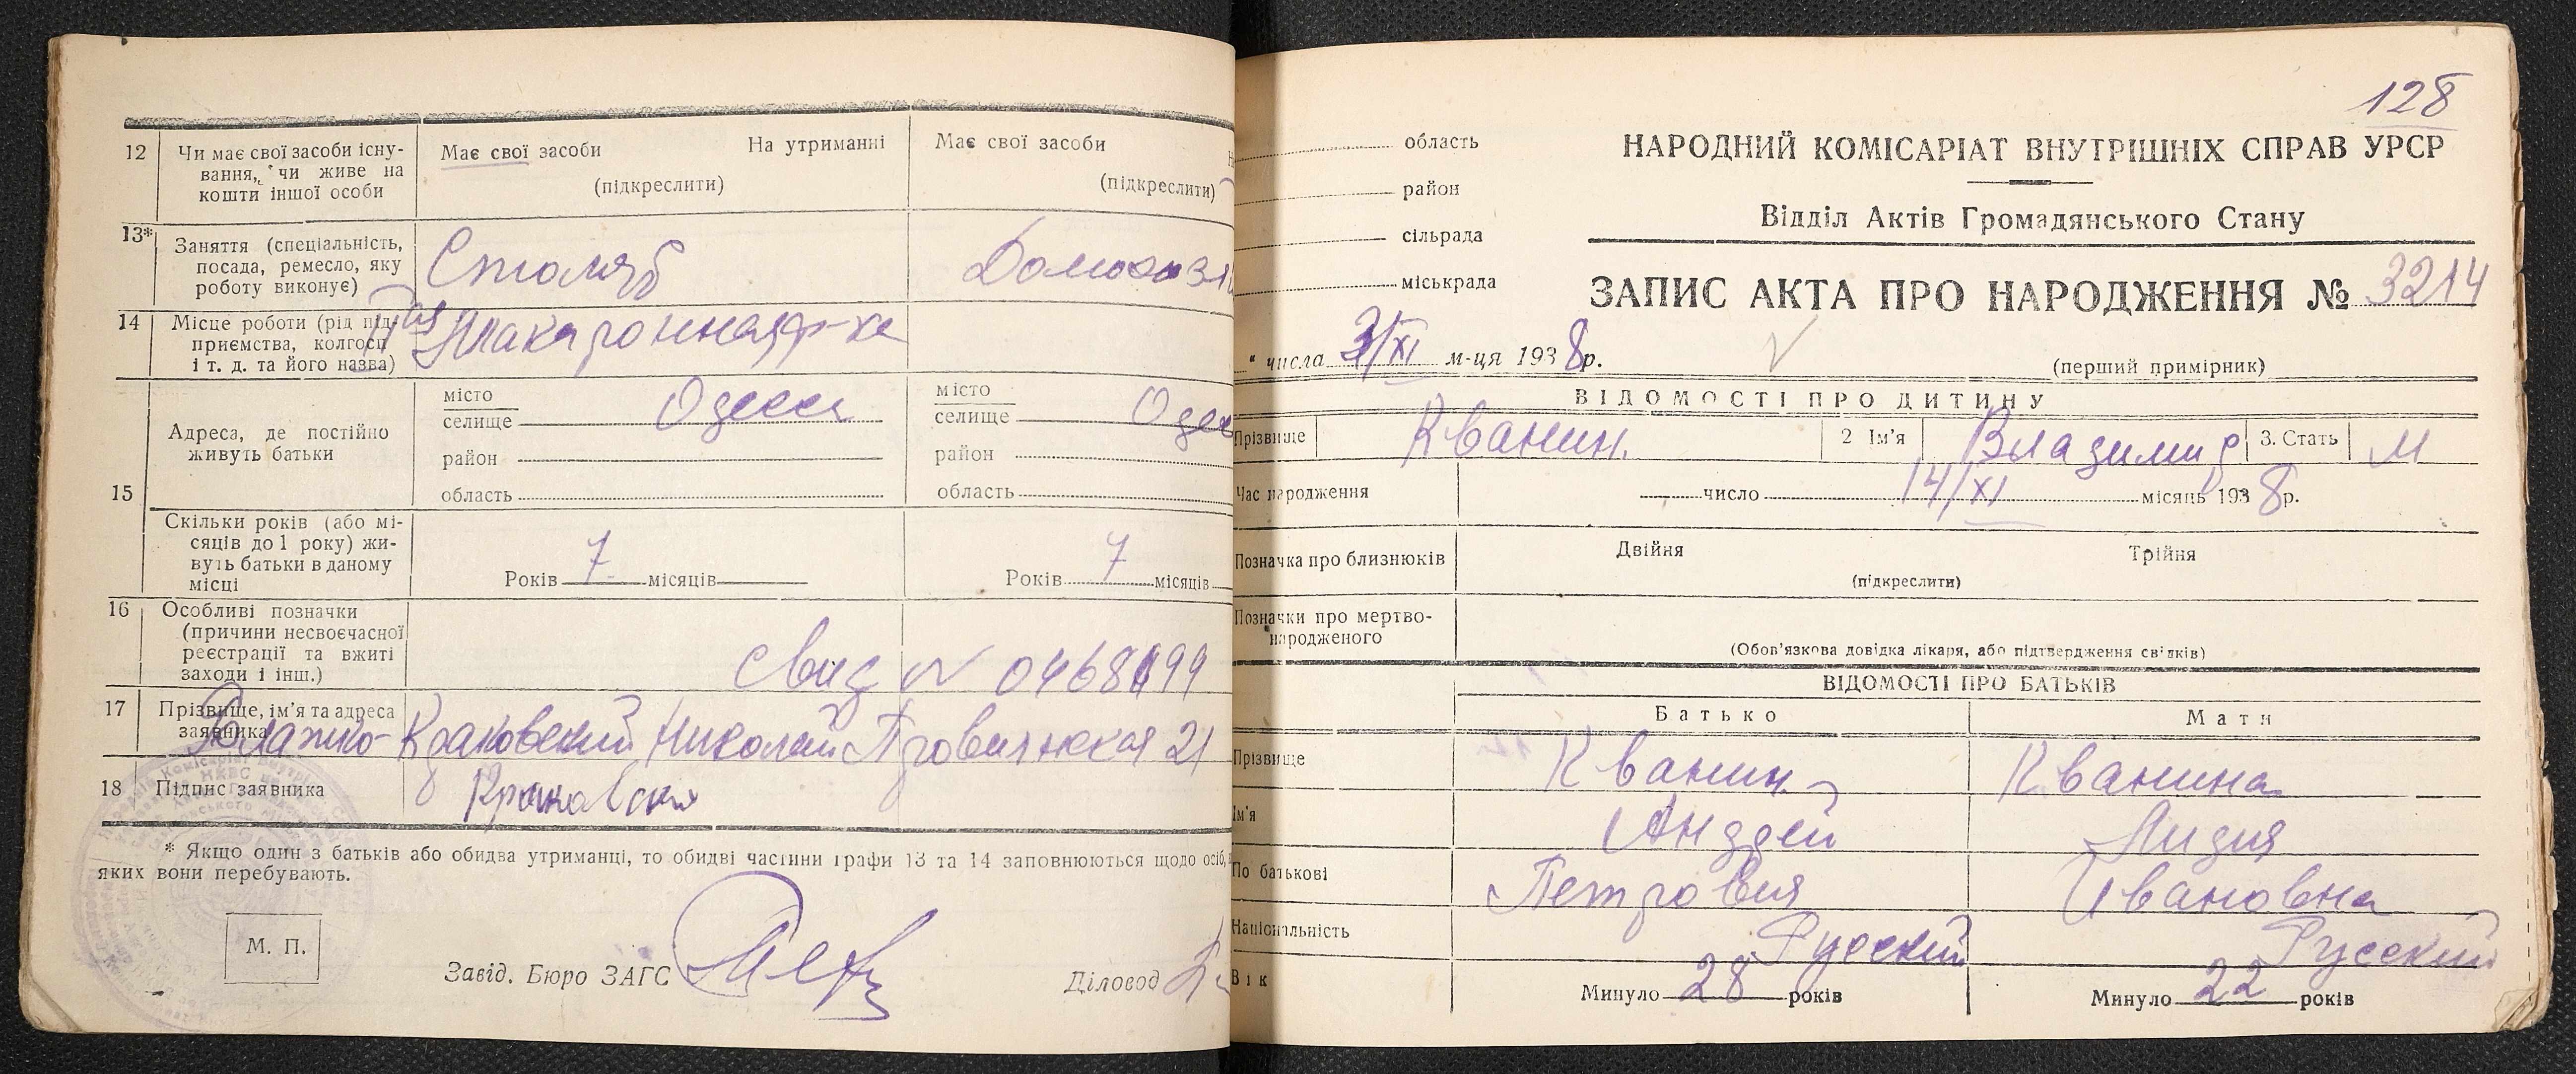 12 Чи має свої засоби існу-
вання, чи живе на
кошти іншої особи
Має свої засоби На утриманні
(підкреслити)
Має свої засоби
(підкреслити)
13* Заняття (спеціальність,
посада, ремесло, яку
роботу виконує)
Столяр
14 Місце роботи (рід під-
приємства, колгосп
і т. д. та його назва)
Макаронная ф-ка
15 Адреса, де постійно
живуть батьки
місто
селище Одесса
район
область
місто
селище
район
область
Скільки років (або мі-
сяців до 1 року) жи-
вуть батьки в даному
місці
Років 7 місяців
Років 7 місяців
16 Особливі позначки
(причини несвоєчасної
реєстрації та вжиті
заходи і інш.)
Свид N
17 Прізвище, ім'я та адреса
заявника
Николай 21
18 Підпис заявника
* Якщо один з батьків або обидва утриманці, то обидві частини графи 13 та 14 заповнюються щодо осіб,
яких вони перебувають.
М. П.
Завід. Бюро ЗАГС
Діловод
128
область
район
сільрада
міськрада
НАРОДНИЙ КОМІСАРІАТ ВНУТРІШНІХ СПРАВ УРСР
Відділ Актів Громадянського Стану
ЗАПИС АКТА ПРО НАРОДЖЕННЯ № 3214
" числа /XI м-ця 1938р.
(перший примірник)
ВІДОМОСТІ ПРО ДИТИНУ
Прізвище Кванин. 2 Ім'я Владимир 3. Стать М
Час народження число 14/XI місяць 1938р.
Позначка про близнюків Двійня Трійня
(підкреслити)
Позначки про мертво-
народженого
(Обов'язкова довідка лікаря, або підтвердження свідків)
ВІДОМОСТІ ПРО БАТЬКІВ
Батько Мати
Прізвище Кванин Кванина
Ім'я Андрей Лидия
По батькові Петрович Ивановна
Національність Русский Русский
Вік Минуло 28 років Минуло 22 років